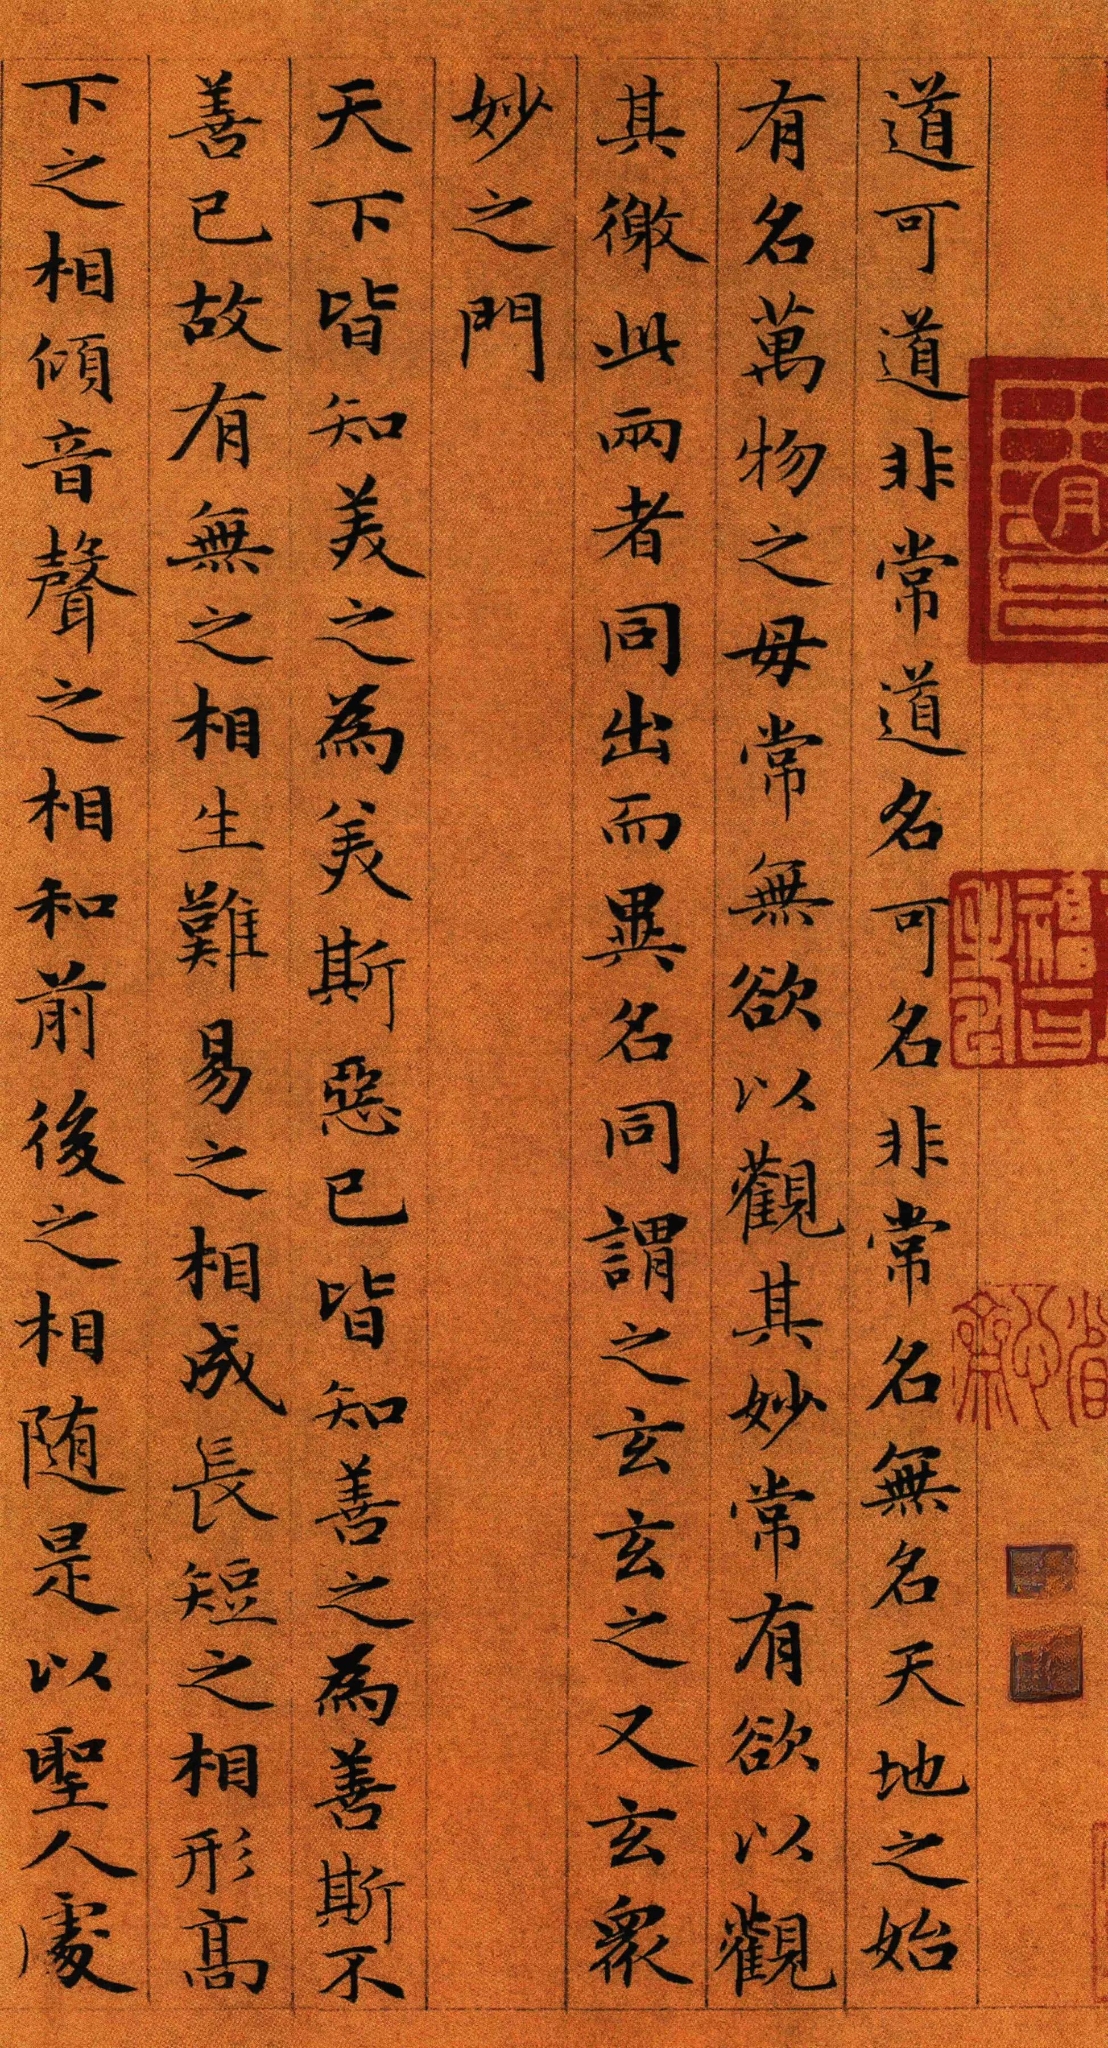 道可道非常道名可名非常名無名天地之始
有名萬物之母常無欲以觀其妙常有欲以觀
其徼此兩者同出而異名同謂之玄玄之又玄衆
妙之門
天下皆知美之為美斯惡已皆知善之為善斯不
善已故有無之相生難易之相成長短之相形高
下之相傾音聲之相和前後之相随是以聖人處